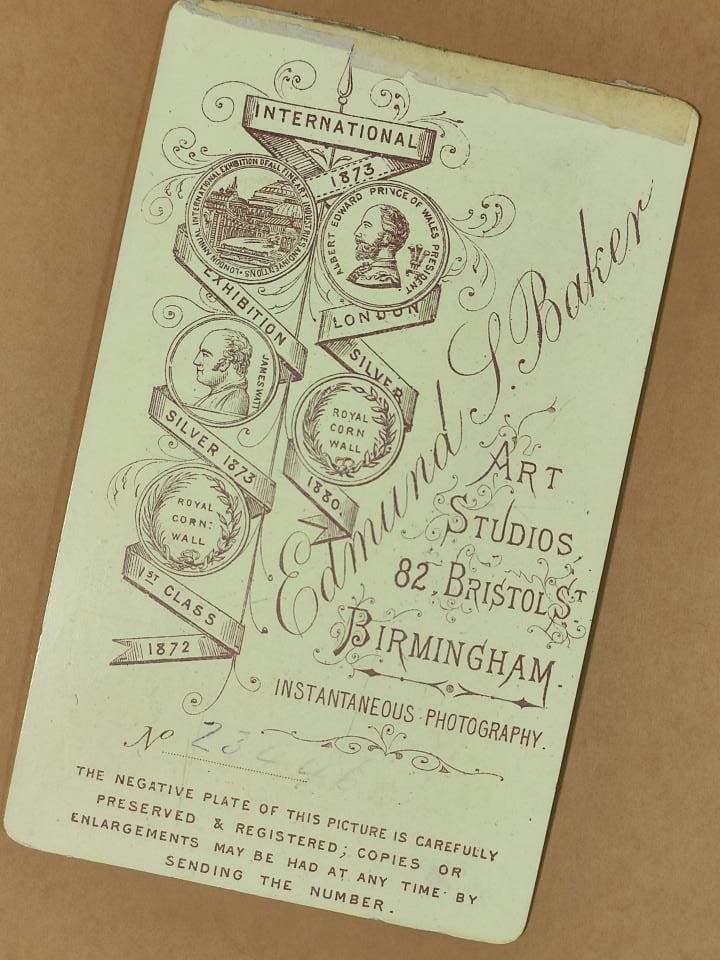 INTERNATIONAL
1873
LONDON ANNUAL INTERNATIONAL EXHIBITION OF ALL FINE ARTS INDUSTRIES AND INVENTIONS
ALBERT EDWARD PRINCE OF WALES PRESIDENT
EXHIBITION
LONDON
SILVER
JAMES WATT
ROYAL
CORN
WALL
SILVER 1873
1880
ROYAL
CORN:
WALL
1ST CLASS
1872
Edmund S. Baker
ART
STUDIOS,
82, BRISTOL ST
BIRMINGHAM.
INSTANTANEOUS PHOTOGRAPHY.
No 23
THE NEGATIVE PLATE OF THIS PICTURE IS CAREFULLY
PRESERVED & REGISTERED; COPIES OR
ENLARGEMENTS MAY BE HAD AT ANY TIME BY
SENDING THE NUMBER.